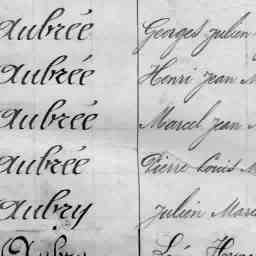 Aubrée Georges Julien
Aubrée Henri Jean M
Aubrée Marcel Jean M
Aubrée Pierre Louis M
Aubry Julien Marc
Aubry